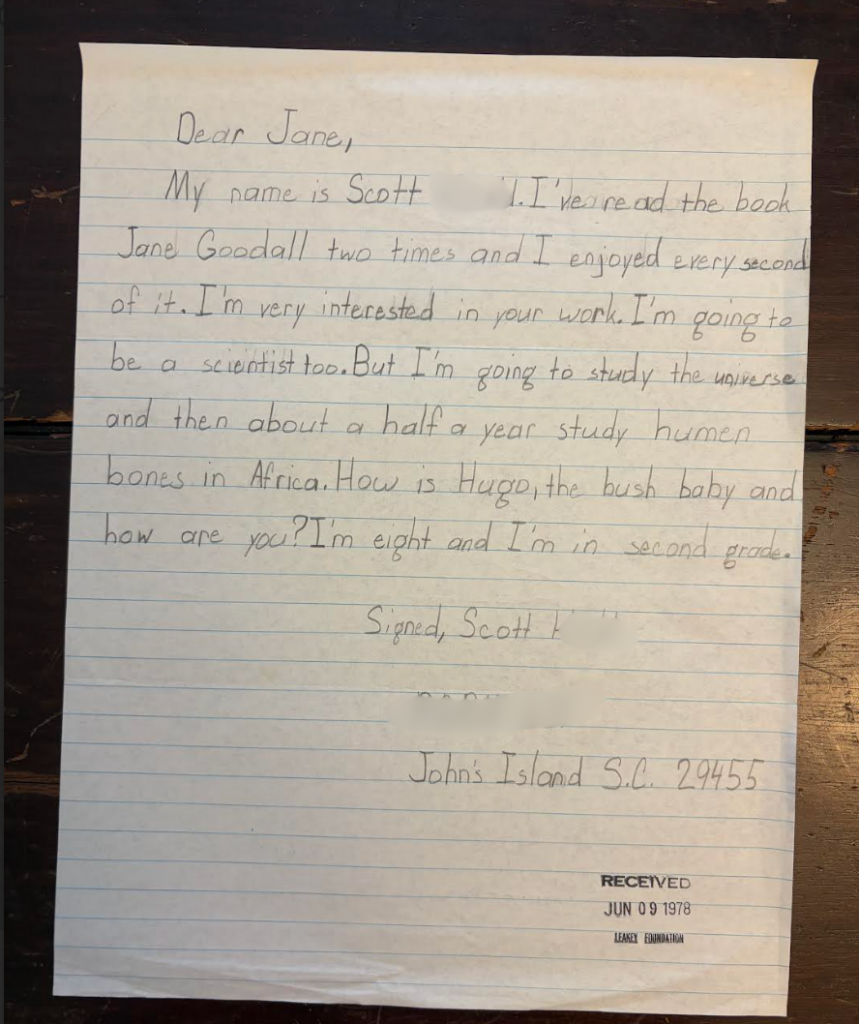 Dear Jane,
My name is Scott . I've read the book
Jane Goodall two times and I enjoyed every second
of it. I'm very interested in your work. I'm going to
be a scientist too. But I'm going to study the universe
and then about a half a year study humen
bones in Africa. How is Hugo, the bush baby and
how are you? I'm eight and I'm in second grade.
Signed, Scott
John's Island S.C. 29455
RECEIVED
JUN 09 1978
LEAKEY FOUNDATION